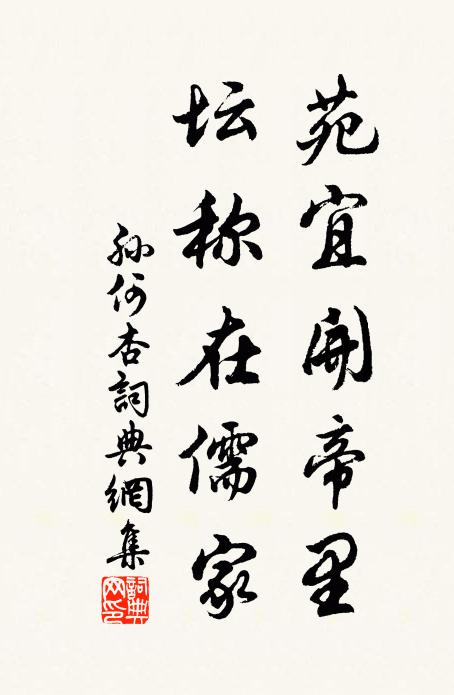 苑宜開帝里
坛称在儒家
孙何杏詞典網集
詞典网印